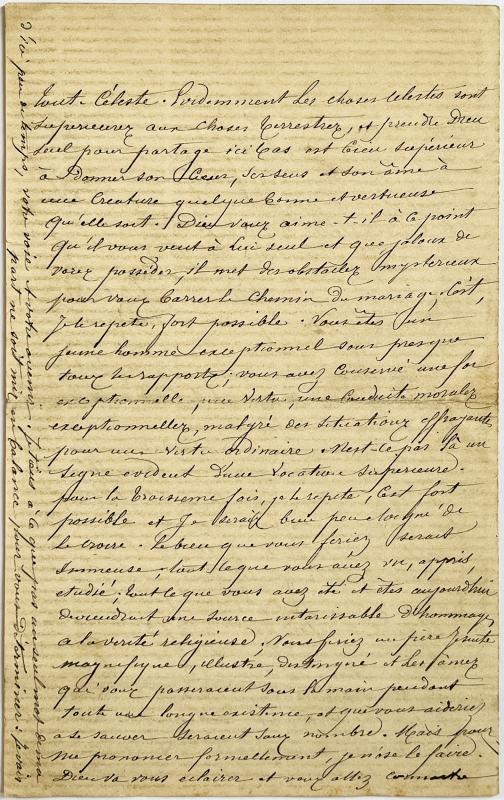 tout Céleste. Evidemment les choses celestes sont
superieurez aux choses terrestrez, et prendre Dieu
seul pour partage ici bas est bien superieur
à donner son Cœur, ses sens et son âme à
une Creature quelque bonne et vertueuse
qu'elle soit. Dieu vous aime-t-il à ce point
qu'il vous veut à lui seul et que jaloux de
vous posséder il met des obstacles mysterieux
pour vous barrer le chemin du mariage, C'est,
Je le repete, fort possible. Vous êtes un
jeune homme exceptionnel sous presque
tous les rapports; vous avez conservé une foi
exceptionnelle, une vertu, une conduite morales
exceptionnelles, malgré des situations effrayantes
pour une vertu ordinaire. N'est-ce pas là un
signe evident d'une vocation superieure.
pour la troisieme fois, je le repete, C'est fort
possible et Je serais bien peu eloigné de
le croire. Le bien que vous feriez serait
Immense. tout ce que vous avez vu, appris,
etudié, tout ce que vous avez été et êtes aujourd'hui
deviendrait une source intarissable d'hommage,
a la verité religieuse. Vous feriez un pere Jesuite
magnifique, illustre, distingué et les âmes
qui vous passeraient sous la main pendant
toute une longue existence, et que vous aideriez
à se sauver seraient sans nombre. Mais pour
me prononcer formellement, je n'ose le faire.
Dieu va vous éclairer et vous allez connaitre
d'ici peu de temps, votre voie et votre avenir.
à ce que pas un seul mot de ma
part ne soit mis en balance pour vous determiner.